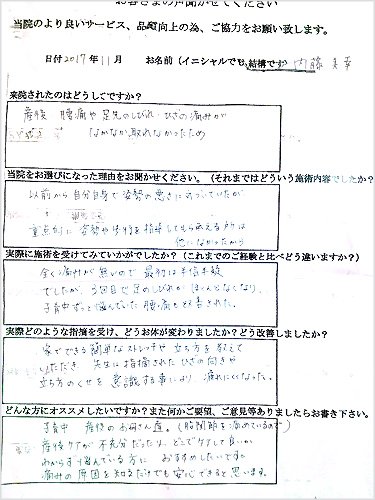 お客さまの声聞かせてください
当院のより良いサービス、品質向上の為、ご協力をお願い致します。
日付 2017年11月 お名前（イニシャルでも結構です）内藤
来院されたのはどうしてですか？
産後 腰痛や足先のしびれ・ひざの痛みが
なかなか取れなかったため
当院をお選びになった理由をお聞かせください。（それまではどういう施術内容でしたか？
以前から自分自身で姿勢の悪さに気づいていたが
重点的に姿勢や歩行を指導してもらえる所は
他になかったから
実際に施術を受けてみていかがでしたか？（これまでのご経験と比べどう違いますか？）
全く痛みが無いので最初は半信半疑
でしたが、3回目で足のしびれがほとんどなくなり、
子育中ずっと悩んでいた腰痛も改善された。
実際どのような指摘を受け、どうお体が変わりましたか？どう改善しましたか？
家でできる簡単なストレッチや立ち方を教えて
いただき 先生に指摘されたひざの向きや
立ち方のくせを意識する事により 疲れにくくなった。
どんな方にオススメしたいですか？また何かご要望、ご意見等ありましたらお書き下さい。
子育中 産後のお母さん達。（股関節を痛めているので）
産後ケアが不充分だったり、どこでケアして良いか
わからず悩んでいる方に おすすめしたいです。
痛みの原因を知るだけでも安心できると思います。